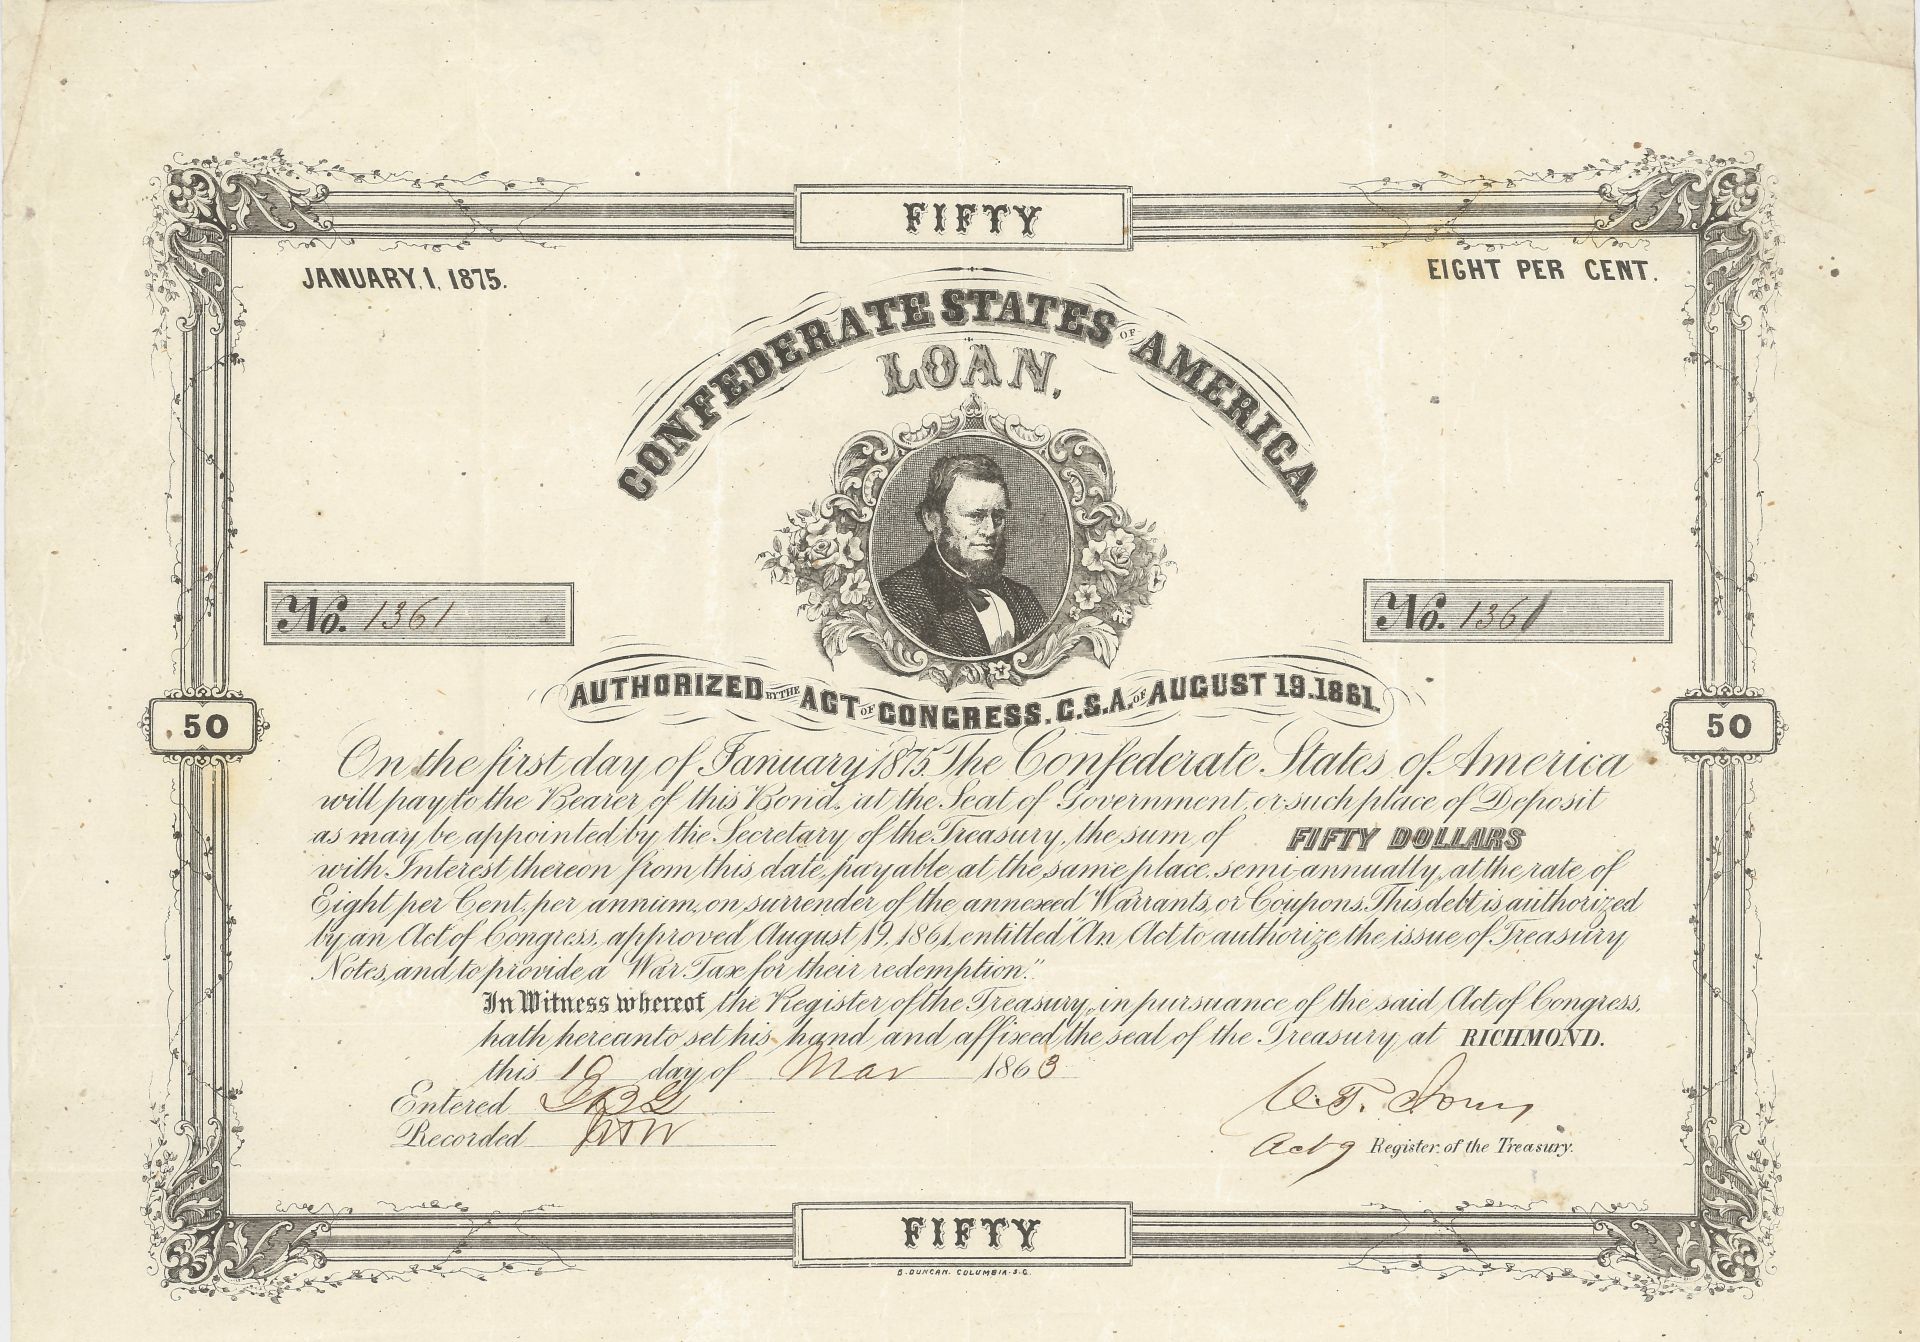 FIFTY
JANUARY, 1, 1875.
EIGHT PER CENT.
CONFEDERATE STATES OF AMERICA
LOAN,
No. 1361
No. 1361
AUTHORIZED BY THE ACT OF CONGRESS. C.S.A. OF AUGUST 19. 1861.
50
50
On the first day of January 1875. The Confederate States of America
will pay to the Bearer of this Bond, at the Seat of Government, or such place of Deposit
as may be appointed by the Secretary of the Treasury, the sum of FIFTY DOLLARS
with Interest thereon from this date, payable at the same place, semi-annually, at the rate of
Eight per Cent. per annum, on surrender of the annexed Warrants, or Coupons. This debt is authorized
by an Act of Congress, approved August 19, 1861, entitled "An Act to authorize the issue of Treasury
Notes, and to provide a War Tax for their redemption."
In Witness whereof the Register of the Treasury, in pursuance of the said Act of Congress,
hath hereunto set his hand and affixed the seal of the Treasury, at RICHMOND.
this 10 day of Mar 1863
Entered
Recorded
Actg Register of the Treasury.
FIFTY
B. DUNCAN. COLUMBIA. S.C.